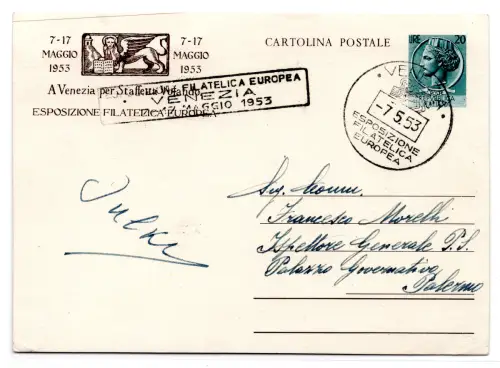 7-17
MAGGIO
1953
7-17
MAGGIO
1953
CARTOLINA POSTALE
LIRE 20
A Venezia per Staffetta
ESPOSIZIONE FILATELICA EUROPEA
FILATELICA EUROPEA
VENEZIA
MAGGIO 1953
-7.5.53
ESPOSIZIONE
FILATELICA
EUROPEA
Francesco Morelli
Ispettore Generale P.S.
Palazzo Governativo
Palermo